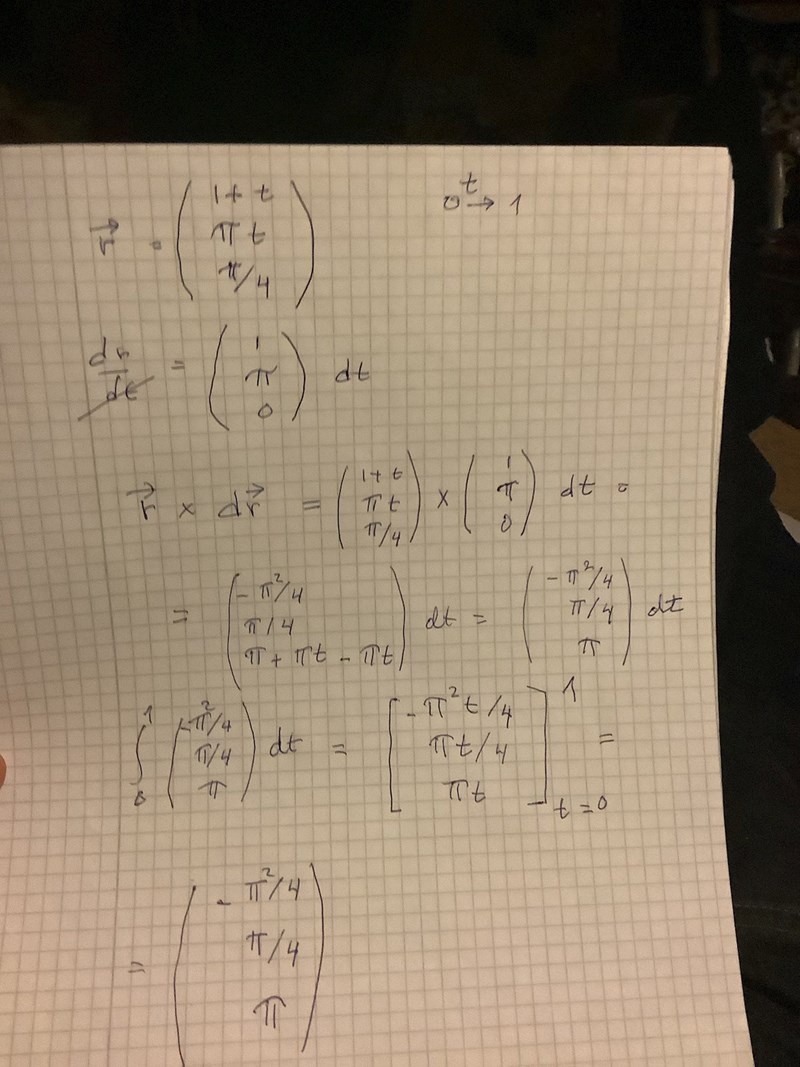 r⃗ = (1+t, πt, π/4) 0 t→ 1
dr/dt = (1, π, 0) dt
r⃗ × dr⃗ = (1+t, πt, π/4) × (1, π, 0) dt =
= (-π²/4, π/4, π+πt-πt) dt = (-π²/4, π/4, π) dt
∫₀¹ (-π²/4, π/4, π) dt = [-π²t/4, πt/4, πt]¹ₜ₌₀ =
= (-π²/4, π/4, π)